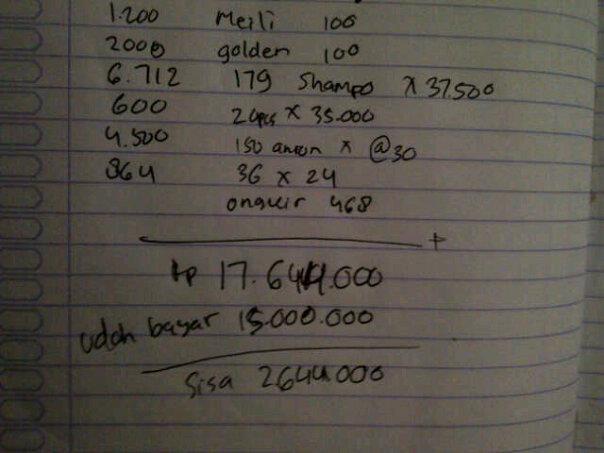 1.200 Meili 100
2000 golden 100
6.712 179 Shampo x 37.500
600 24pcs x 35.000
4.500 150 anron x @30
864 36 x 24
ongkir 468
+
Rp 17.644.000
udah bayar 15.000.000
Sisa 2644.000